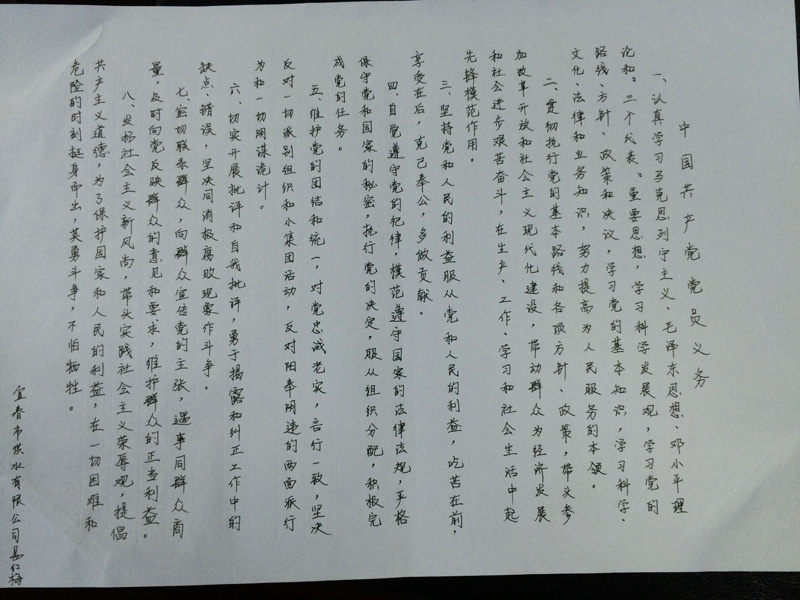 中国共产党党员义务
一、认真学习马克思列宁主义、毛泽东思想、邓小平理
论和“三个代表”重要思想，学习科学发展观，学习党的
路线、方针、政策和决议，学习党的基本知识，学习科学、
文化、法律和业务知识，努力提高为人民服务的本领。
二、贯彻执行党的基本路线和各项方针、政策，带头参
加改革开放和社会主义现代化建设，带动群众为经济发展
和社会进步艰苦奋斗，在生产、工作、学习和社会生活中起
先锋模范作用。
三、坚持党和人民的利益服从党和人民的利益，吃苦在前，
享受在后，克己奉公，多做贡献。
四、自觉遵守党的纪律，模范遵守国家的法律法规，严格
保守党和国家的秘密，执行党的决定，服从组织分配，积极完
成党的任务。
五、维护党的团结和统一，对党忠诚老实，言行一致，坚决
反对一切派别组织和小集团活动，反对阳奉阴违的两面派行
为和一切阴谋诡计。
六、切实开展批评和自我批评，勇于揭露和纠正工作中的
缺点、错误，坚决同消极腐败现象作斗争。
七、密切联系群众，向群众宣传党的主张，遇事同群众商
量，及时向党反映群众的意见和要求，维护群众的正当利益。
八、发扬社会主义新风尚，带头实践社会主义荣辱观，提倡
共产主义道德，为了保护国家和人民的利益，在一切困难和
危险的时刻挺身而出，英勇斗争，不怕牺牲。
宜春市供水有限公司 红梅